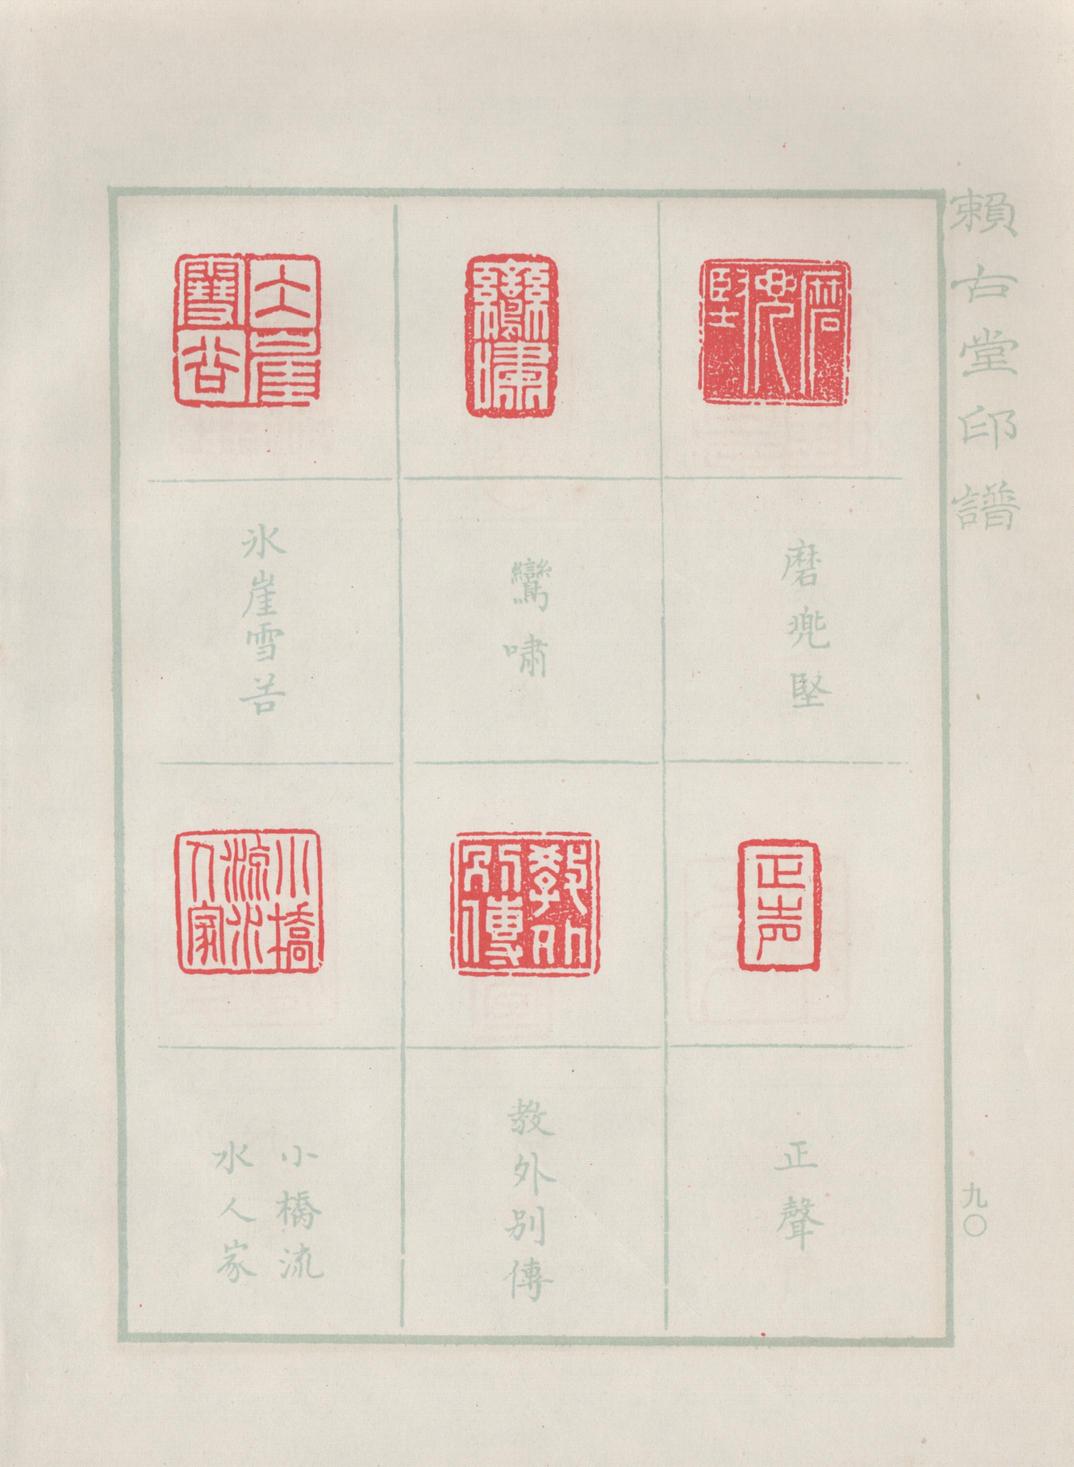 賴古堂印譜
磨兜堅
鸞嘯
氷崖雪谷
正聲
教外別傳
小橋流
水人家
九〇